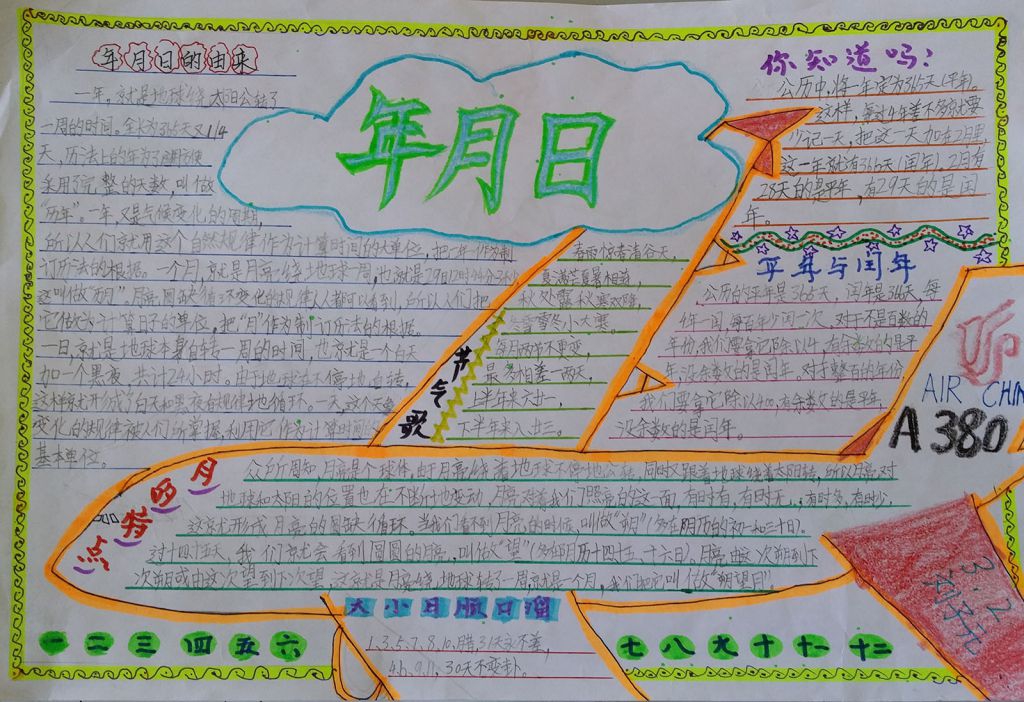 年月日的由来
一年，就是地球绕太阳公转了
一周的时间。全长为365天又1/4
天，历法上的年为了方便
采用了完整的天数，叫做
"历年"。一年又是气候变化的周期
所以人们就用这个自然规律作为计算时间的大单位，把"年"作为制
订历法的根据。一个月，就是月亮绕地球一周，也就是29日12时44分3秒，
这叫做"朔月"。月亮圆缺循环变化的规律人人都可以看到，所以人们把
它做为计算日子的单位，把"月"作为制订历法的根据。
一日，就是地球本身自转一周的时间，也就是一个白天
加一个黑夜，共计24小时。由于地球在不停地自转，
这样就形成了白天和黑夜有规律地循环，一天，这个天象
变化的规律被人们所掌握，利用它作为计算时间的
基本单位。
年月日
你知道吗？
公历中，将一年定为365天（平年）。
这样，每过4年差不多就要
少记一天，把这一天加在2月里，
这一年就有366天（闰年）。2月有
28天的是平年，有29天的是闰
年。
节气歌
春雨惊春清谷天，
夏满芒夏暑相连，
秋处露秋寒霜降，
冬雪雪冬小大寒。
每月两节不更变，
最多相差一两天，
上半年来六廿一，
下半年来八廿三。
平年与闰年
公历的平年是365天，闰年是366天，每
4年一闰，每百年少闰一次，对于不是百数的
年份，我们要拿它除以4，有余数的是平
年，没余数的是闰年。对于整百的年份，
我们要拿它除以400，有余数的是平年，
没余数的是闰年。
AIR CHIN
A380
月四特点
众所周知，月亮是个球体，由于月亮绕着地球不停地公转，同时又跟着地球绕着太阳转，所以月亮对
地球和太阳的位置也在不断地变动，月亮对着我们照亮的这一面，有时有，有时无，有时多，有时少，
这就形成月亮的圆缺循环。当我们看不到月亮的时候，叫做"朔"（多在阴历的初一和三十日）。
过十四十五天，我们就会看到圆圆的月亮，叫做"望"（多在阴历十四十五、十六日）。月亮由这次朔到下
次朔或由这次望到下次望，这就是月亮绕地球转了一周，就是一个月，我们把它叫做"朔望月"。
大小月顺口溜
1、3、5、7、8、10、腊，31天永不差，
4、6、9、11，30天不变卦。
一 二 三 四 五 六
七 八 九 十 十一 十二